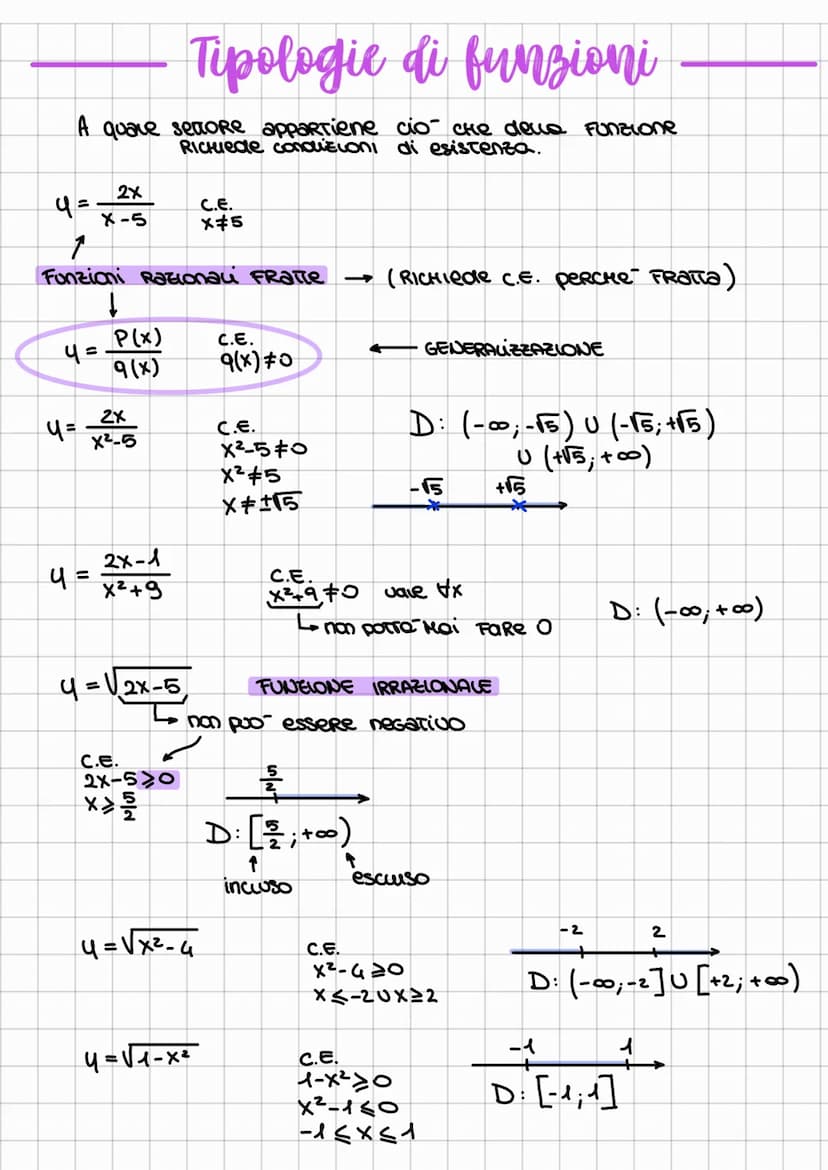 Tipologie di funzioni
A quale settore appartiene cio- che della funzione
richiede condizioni di esistenza.
y = 2x/(x-5) C.E.
x≠5
Funzioni razionali fratte → (richiede C.E. perche- fratta)
y = P(x)/q(x) C.E.
q(x)≠0 ← GENERALIZZAZIONE
y = 2x/(x²-5) C.E.
x²-5≠0
x²≠5
x≠±√5
D: (-∞;-√5) U (-√5;+√5)
U (+√5;+∞)
-√5 +√5
y = (2x-1)/(x²+9) C.E.
x²+9≠0 vale ∀x
non potra- mai fare 0
D: (-∞;+∞)
y = √(2x-5) FUNZIONE IRRAZIONALE
non puo- essere negativo
C.E.
2x-5⩾0
x⩾5/2
5/2
D: [5/2;+∞)
incluso escluso
y = √(x²-4) C.E.
x²-4⩾0
x≤-2 U x≥2
-2 2
D: (-∞;-2] U [+2;+∞)
y = √(1-x²) C.E.
1-x²⩾0
x²-1⩽0
-1⩽x⩽1
-1 1
D: [-1;1]